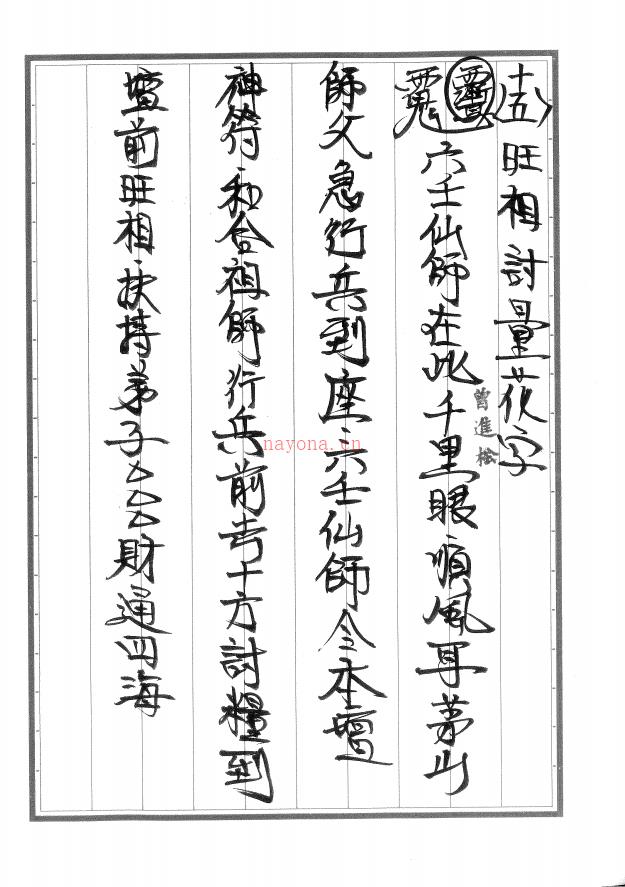 十五 旺相討量花字
六壬仙師在此千里眼順風耳茅山
師父急行兵到座六壬仙師令本壇
神符和合祖師行兵前去十方討糧到
壇前旺相扶持弟子厶厶財通四海
曾進松
nayona.cn